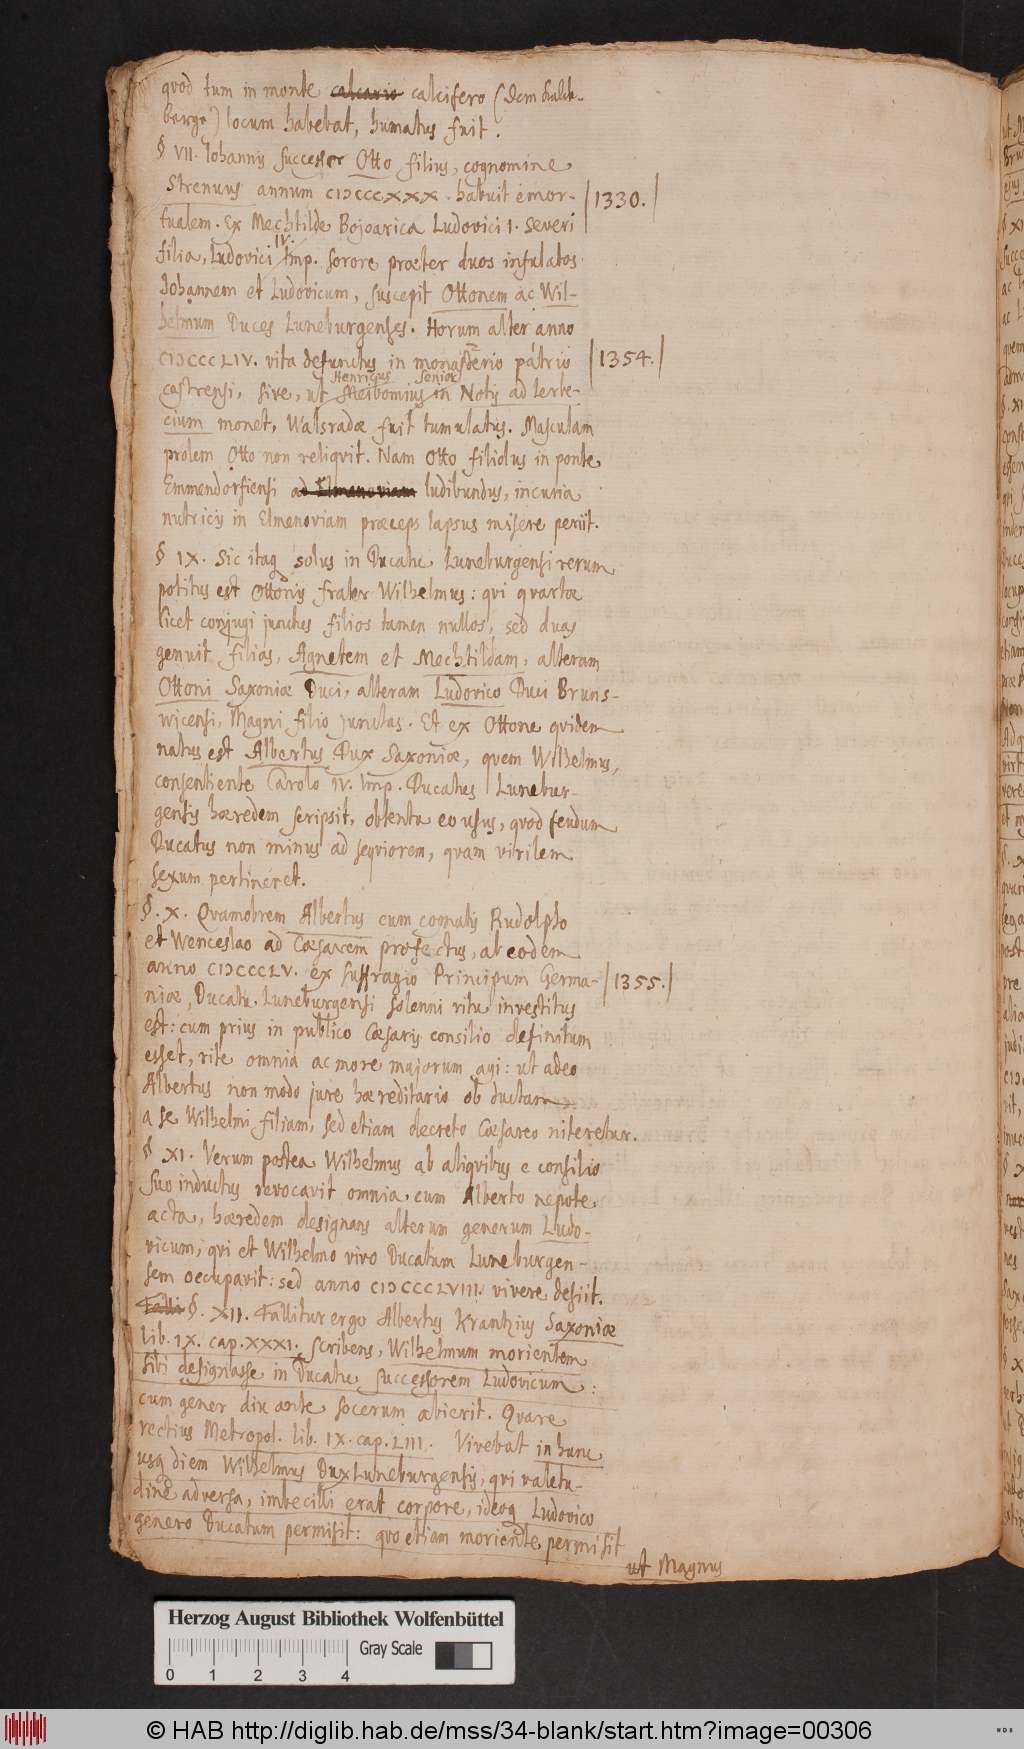 quod tum in monte calcario calcifero (dem Kalck-
berge) locum habebat, humatus fuit.
§ VII. Iohannis successor Otto filius, cognomine
Strenuus annum CIƆCCCXXX. habuit emor-
|1330.|
tualem. Ex Mechtilde Bojoarica Ludovici I. Severi
filia, Ludovici IV. Imp. sorore præter duos infulatos
Iohannem et Ludovicum, suscepit Ottonem ac Wil-
helmum Duces Luneburgenses. Horum alter anno
CIƆCCCLIV. vita defunctus in monasterio patrio
|1354.|
Henricus Senior
castrensi, sive, ut Meibomius in Notis ad Lerbe-
cium monet, Walsradæ fuit tumulatus. Masculam
prolem Otto non reliqvit. Nam Otto filiolus in ponte
Emmendorfiensi ad Elmenoviam ludibundus, incuria
nutricis in Elmenoviam præceps lapsus misere periit.
§ IX. Sic itaq solus in Ducatu Luneburgensi rerum
potitus est Ottonis frater Wilhelmus: qvi qvartæ
licet conjugi junctus filios tamen nullos, sed duas
genuit filias, Agnetem et Mechtildam, alteram
Ottoni Saxoniæ Duci, alteram Ludovico Duci Bruns-
wicensi, Magni filio junctas. Et ex Ottone qvidem
natus est Albertus Dux Saxoniæ, quem Wilhelmus,
consentiente Carolo IV. Imp. Ducatus Lunebur-
gensis hæredem scripsit, obtenta eo usus, qvod feudum
Ducatus non minus ad seqviorem, qvam virilem
sexum pertineret.
§. X. Qvamobrem Albertus cum cognatis Rudolpho
et Wenceslao ad Cæsarem profectus, ab eodem
anno CIƆCCCLV. ex suffragio Principum Germa-
|1355.|
niæ, Ducatu Luneburgensi solenni ritu investitus
est: cum prius in publico Cæsaris consilio definitum
esset, rite omnia ac more majorum agi: ut adeo
Albertus non modo jure hæreditario ob ductam
a se Wilhelmi filiam, sed etiam decreto Cæsareo niteretur.
§ XI. Verum postea Wilhelmus ab aliqvibus e consilio
suo inductus revocavit omnia cum Alberto nepote
acta, hæredem designans alterum generum Ludo-
vicum, qvi et Wilhelmo vivo Ducatum Luneburgen-
sem occupavit: sed anno CIƆCCCLVIII. vivere desiit.
Falli §. XII. Fallitur ergo Albertus Krantzius Saxoniæ
lib. IX. cap. XXXI. scribens, Wilhelmum morientem
sibi designasse in Ducatu successorem Ludovicum:
cum gener diu ante socerum abierit. Qvare
rectius Metropol. lib. IX. cap. LIII. Vivebat in hunc
usq diem Wilhelmus Dux Luneburgensis, qvi valetu-
dine adversa, imbecilli erat corpore, ideoq Ludovico
genero Ducatum permisit: quo etiam moriente permisit
ut Magnus
Herzog August Bibliothek Wolfenbüttel
Gray Scale
0 1 2 3 4
© HAB http://diglib.hab.de/mss/34-blank/start.htm?image=00306